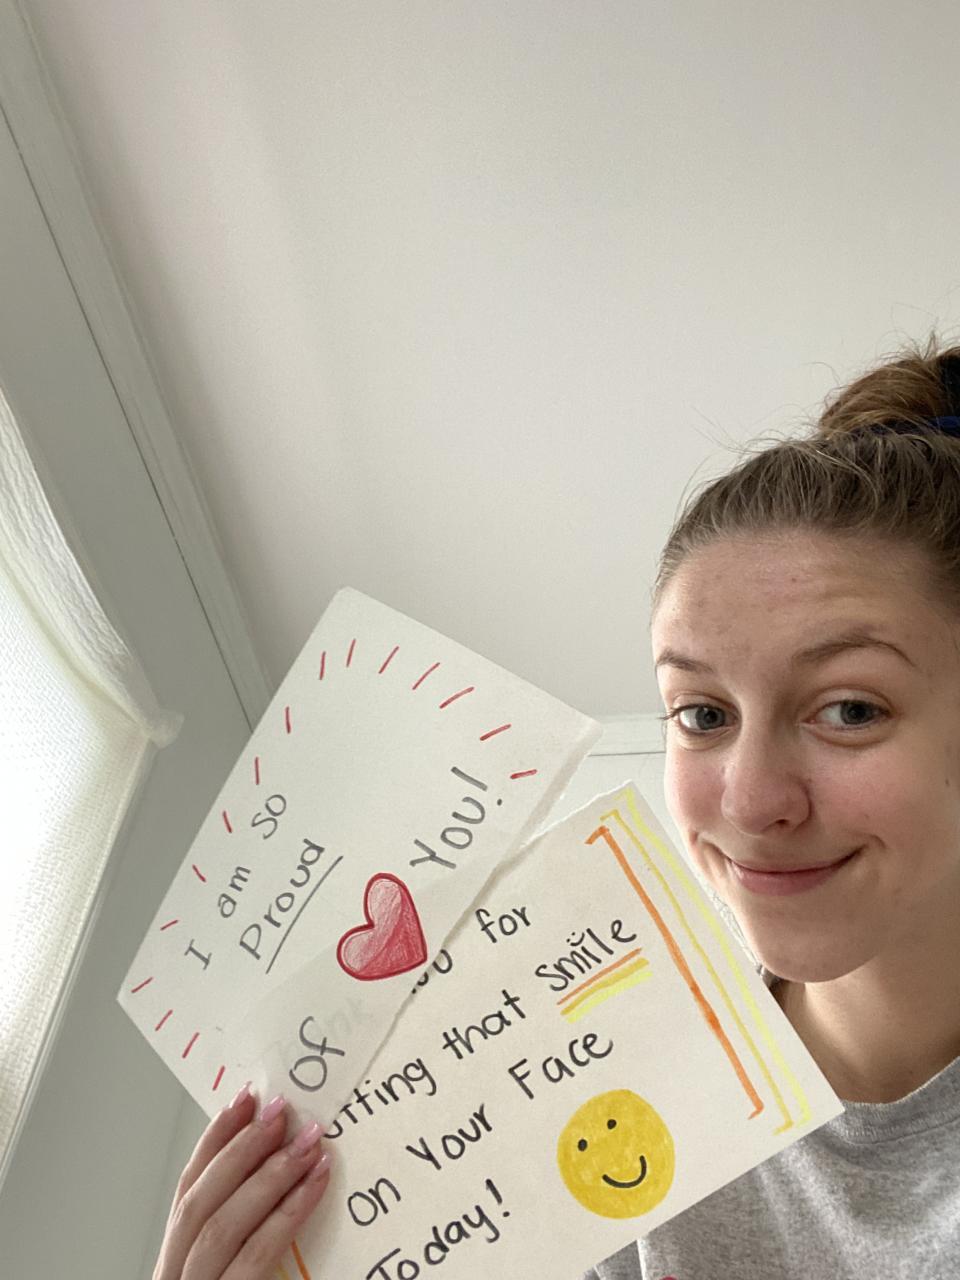 I am so
Proud
Of You!
for
tting that Smile
On Your Face
Today!